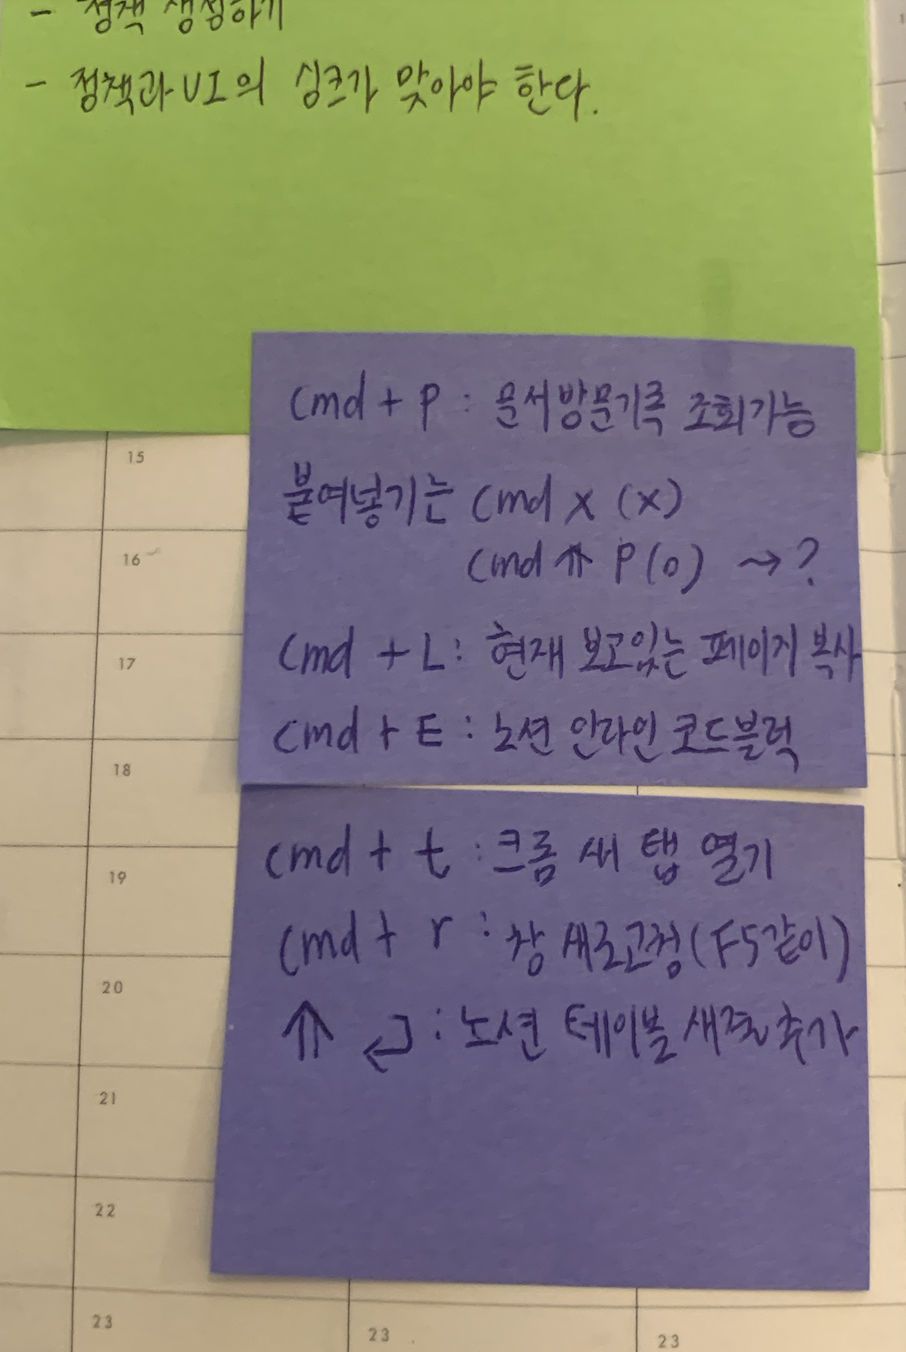 - 정책 생성하기
- 정책과 UI의 싱크가 맞아야 한다.
cmd + P : 문서방문기록 조회가능
붙여넣기는 cmd x (x)
cmd ⇑ P(o) → ?
cmd + L : 현재 보고있는 페이지 복사
cmd + E : 노션 인라인 코드블럭
cmd + t : 크롬 새 탭 열기
cmd + r : 창 새로고침(F5같이)
⇑ ↵ : 노션 테이블 새줄 추가
15
16
17
18
19
20
21
22
23
23
23